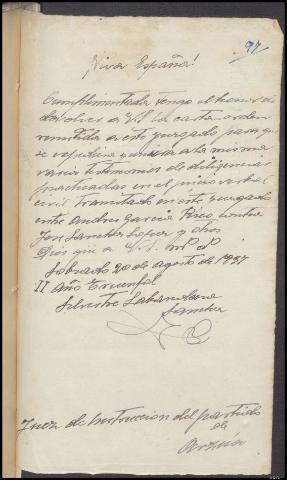 97
¡Viva España!
Cumplimentada tengo el honor de
devolver a V.I. la carta-orden
remitida a este juzgado para que
se expidiera y uniera a la misma
varios testimonios de diligencias
practicadas en el juicio verbal
civil tramitado en este juzgado
entre Andres Garcia Rico contra
Jose Sanchez Lopez y otros
Dios gūe a V.I. m. a.
Sobrado 20 de agosto de 1937
II Año Triunfal
Silvestre
Sanchez
Juez de Instruccion del partido
de
Arzúa